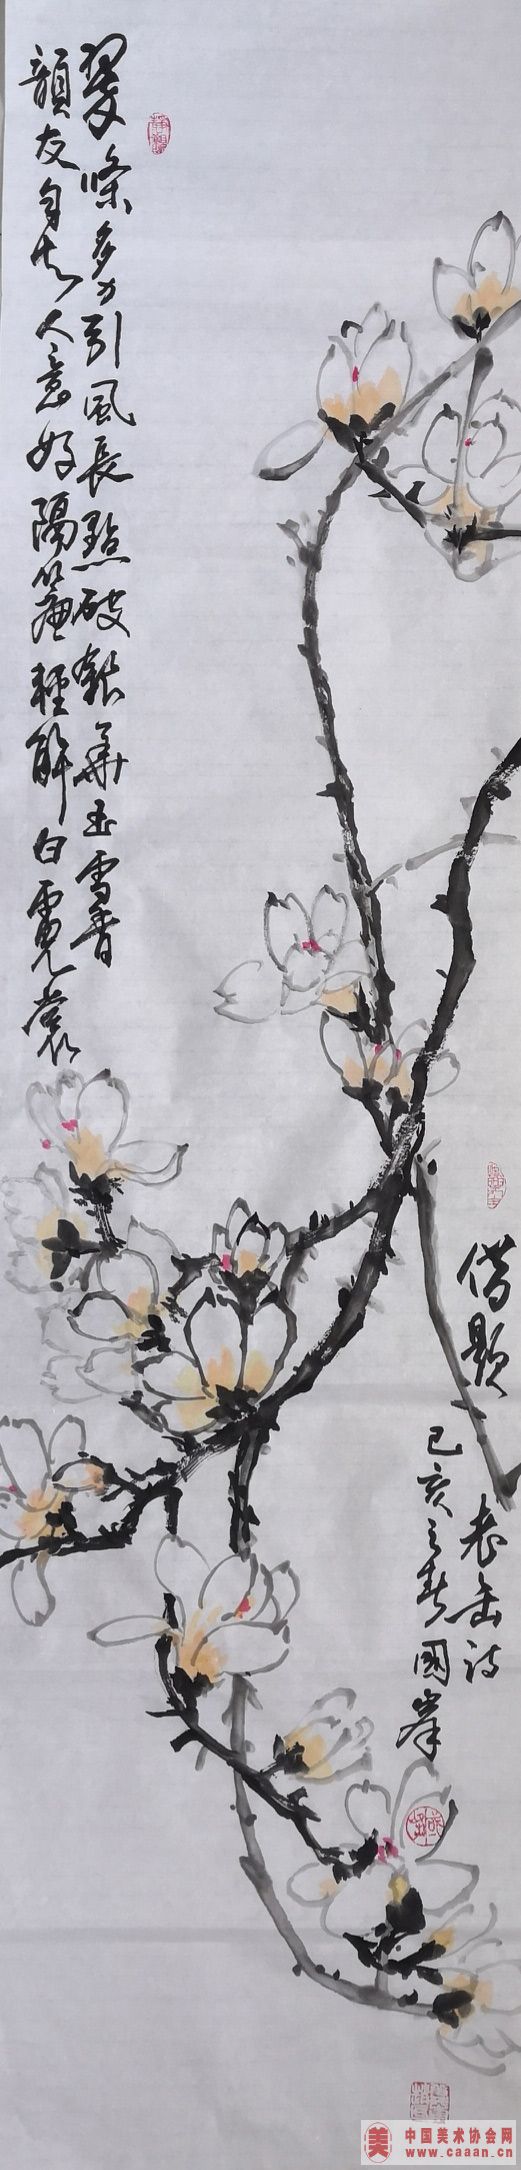 翠條多力引風長點破銀華玉雪香
韻友自知人意好隔簾輕解白霓裳
借題
老缶詩
己亥之春國峯
中国美术协会网
www.caaan.cn